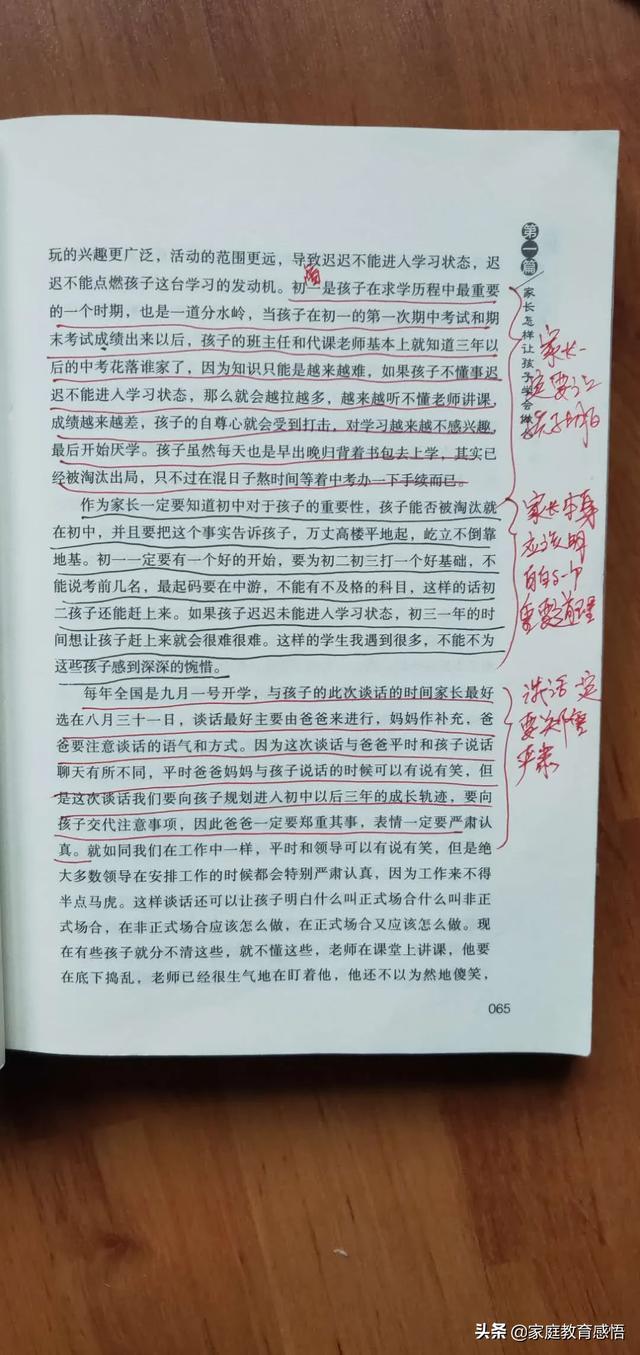 第一篇
家长怎样让孩子学会做
玩的兴趣更广泛，活动的范围更远，导致迟迟不能进入学习状态，迟
迟不能点燃孩子这台学习的发动机。初一是孩子在求学历程中最重要
的一个时期，也是一道分水岭，当孩子在初一的第一次期中考试和期
末考试成绩出来以后，孩子的班主任和代课老师基本上就知道三年以
后的中考花落谁家了，因为知识只能是越来越难，如果孩子不懂事迟
迟不能进入学习状态，那么就会越拉越多，越来越听不懂老师讲课，
成绩越来越差，孩子的自尊心就会受到打击，对学习越来越不感兴趣，
最后开始厌学。孩子虽然每天也是早出晚归背着书包去上学，其实已
经被淘汰出局，只不过在混日子熬时间等着中考办一下手续而已。
作为家长一定要知道初中对于孩子的重要性，孩子能否被淘汰就
在初中，并且要把这个事实告诉孩子，万丈高楼平地起，屹立不倒靠
地基。初一一定要有一个好的开始，要为初二初三打一个好基础，不
能说考前几名，最起码要在中游，不能有不及格的科目，这样的话初
二孩子还能赶上来。如果孩子迟迟未能进入学习状态，初三一年的时
间想让孩子赶上来就会很难很难。这样的学生我遇到很多，不能不为
这些孩子感到深深的惋惜。
每年全国是九月一号开学，与孩子的此次谈话的时间家长最好
选在八月三十一日，谈话最好主要由爸爸来进行，妈妈作补充，爸
爸要注意谈话的语气和方式。因为这次谈话与爸爸平时和孩子说话
聊天有所不同，平时爸爸妈妈与孩子说话的时候可以有说有笑，但
是这次谈话我们要向孩子规划进入初中以后三年的成长轨迹，要向
孩子交代注意事项，因此爸爸一定要郑重其事，表情一定要严肃认
真。就如同我们在工作中一样，平时和领导可以有说有笑，但是绝
大多数领导在安排工作的时候都会特别严肃认真，因为工作来不得
半点马虎。这样谈话还可以让孩子明白什么叫正式场合什么叫非正
式场合，在非正式场合应该怎么做，在正式场合又应该怎么做。现
在有些孩子就分不清这些，就不懂这些，老师在课堂上讲课，他要
在底下捣乱，老师已经很生气地在盯着他，他还不以为然地傻笑，
065
家长一
定要让
孩子明白
家长本身
应该明
白的一个
重要道理
谈话一定
要
严肃
头条 @家庭教育感悟